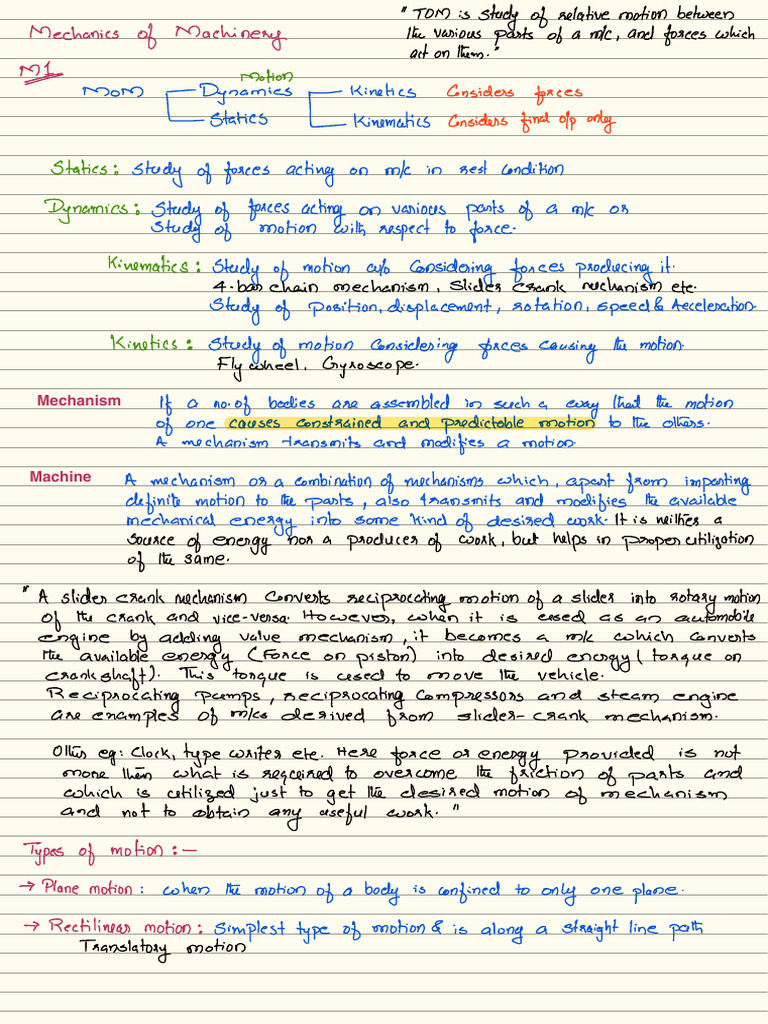 " TOM is study of relative motion between
the various parts of a m/c, and forces which
act on them."
Mechanics of Machinery
M1
Motion
MoM Dynamics Kinetics Considers forces
Statics Kinematics Considers final o/p only
Statics: Study of forces acting on m/c in rest condition
Dynamics: Study of forces acting on various parts of a m/c or
Study of motion with respect to force.
Kinematics: Study of motion w/o Considering forces producing it.
4-bar chain mechanism, Slider crank mechanism etc.
Study of position, displacement, rotation, speed & Acceleration.
Kinetics: Study of motion Considering forces causing the motion.
Fly wheel, Gyroscope.
Mechanism If a no. of bodies are assembled in such a way that the motion
of one causes constrained and predictable motion to the others.
A mechanism transmits and modifies a motion.
Machine A mechanism or a combination of mechanisms which, apart from imparting
definite motion to the parts, also transmits and modifies the available
mechanical energy into some kind of desired work. It is neither a
source of energy nor a producer of work, but helps in proper utilization
of the same.
" A slider crank mechanism converts reciprocating motion of a slider into rotary motion
of the crank and vice-versa. However, when it is used as an automobile
engine by adding valve mechanism, it becomes a m/c which converts
the available energy (Force on piston) into desired energy (torque on
crankshaft). This torque is used to move the vehicle.
Reciprocating pumps, reciprocating compressors and steam engine
are examples of m/cs derived from slider-crank mechanism.
Other eg: Clock, type writer etc. Here force or energy provided is not
more then what is required to overcome the friction of parts and
which is utilized just to get the desired motion of mechanism
and not to obtain any useful work. "
Types of motion :-
→ Plane motion: when the motion of a body is confined to only one plane.
→ Rectilinear motion: Simplest type of motion & is along a straight line path
Translatory motion